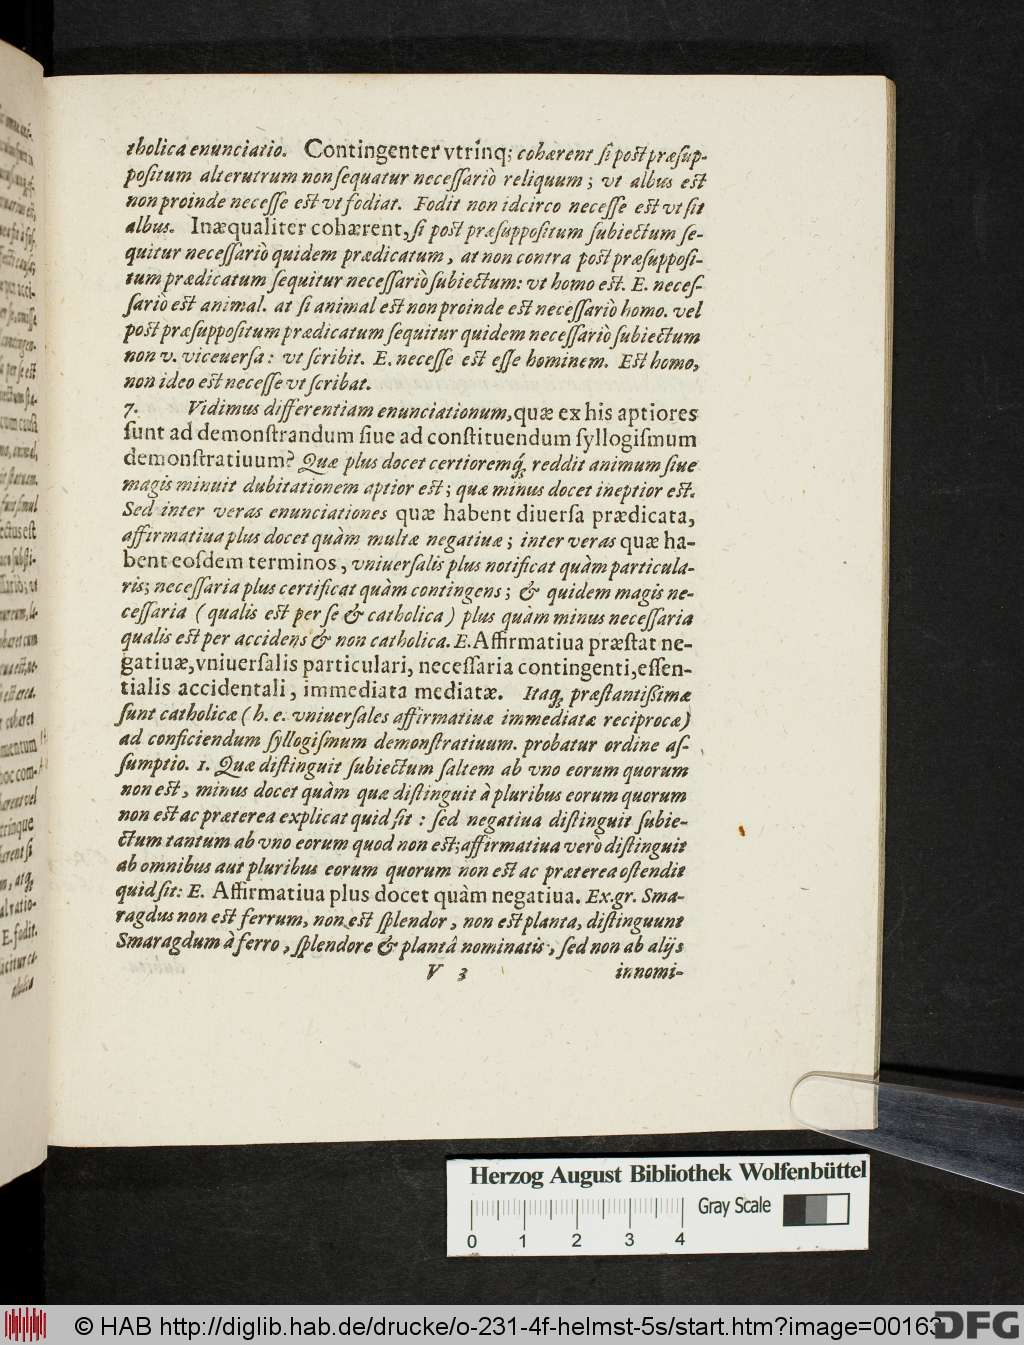 tholica enunciatio. Contingenter vtrinq; cohærent si post præsup-
positum alterutrum non sequatur necessariò reliquum; vt albus est
non proinde necesse est vt fodiat. Fodit non idcirco necesse est vt sit
albus. Inæqualiter cohærent, si post præsuppositum subiectum se-
quitur necessariò quidem prædicatum, at non contra post præsupposi-
tum prædicatum sequitur necessariò subiectum: vt homo est. E. neces-
sariò est animal. at si animal est non proinde est necessariò homo. vel
post præsuppositum prædicatum sequitur quidem necessariò subiectum
non v. viceuersa: vt scribit. E. necesse est esse hominem. Est homo,
non ideo est necesse vt scribat.
7. Vidimus differentiam enunciationum, quæ ex his aptiores
sunt ad demonstrandum siue ad constituendum syllogismum
demonstratiuum? Quæ plus docet certioremq́; reddit animum siue
magis minuit dubitationem aptior est; quæ minus docet ineptior est.
Sed inter veras enunciationes quæ habent diuersa prædicata,
affirmatiua plus docet quàm multæ negatiuæ; inter veras quæ ha-
bent eosdem terminos, vniuersalis plus notificat quàm particula-
ris; necessaria plus certificat quàm contingens; & quidem magis ne-
cessaria (qualis est per se & catholica) plus quàm minus necessaria
qualis est per accidens & non catholica. E. Affirmatiua præstat ne-
gatiuæ, vniuersalis particulari, necessaria contingenti, essen-
tialis accidentali, immediata mediatæ. Itaq; præstantißimæ
sunt catholicæ (h. e. vniuersales affirmatiuæ immediatæ reciprocæ)
ad conficiendum syllogismum demonstratiuum. probatur ordine as-
sumptio. 1. Quæ distinguit subiectum saltem ab vno eorum quorum
non est, minus docet quàm quæ distinguit à pluribus eorum quorum
non est ac præterea explicat quid sit: sed negatiua distinguit subie-
ctum tantum ab vno eorum quod non est; affirmatiua verò distinguit
ab omnibus aut pluribus eorum quorum non est ac præterea ostendit
quid sit: E. Affirmatiua plus docet quàm negatiua. Ex.gr. Sma-
ragdus non est ferrum, non est splendor, non est planta, distinguunt
Smaragdum à ferro, splendore & plantâ nominatis, sed non ab alijs
V 3 innomi-
Herzog August Bibliothek Wolfenbüttel
Gray Scale
0 1 2 3 4
© HAB http://diglib.hab.de/drucke/o-231-4f-helmst-5s/start.htm?image=00163
DFG